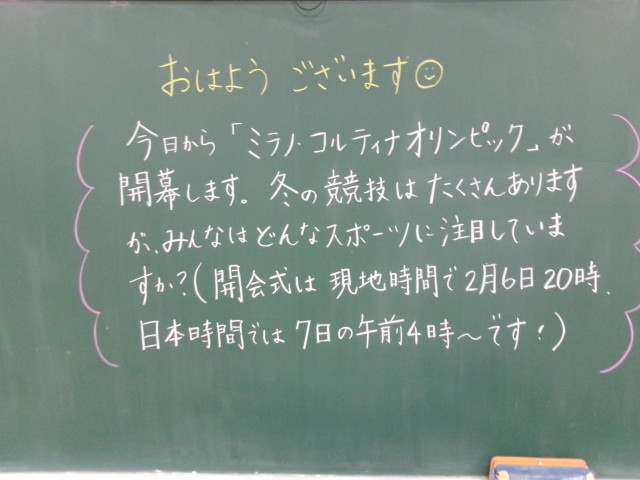 おはよう ございます☺
今日から「ミラノ・コルティナオリンピック」が
開幕します。冬の競技はたくさんあります
が、みんなはどんなスポーツに注目していま
すか?(開会式は現地時間で2月6日20時、
日本時間では7日の午前4時〜です!)